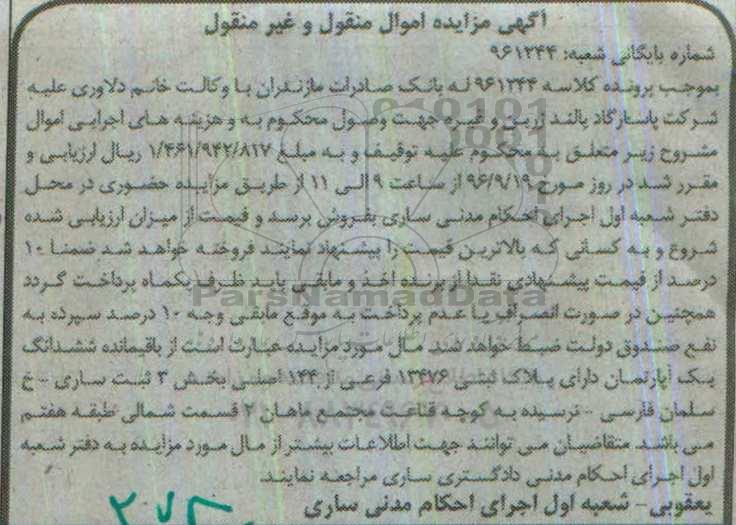 آگهی مزایده اموال منقول و غیر منقول
شماره بایگانی شعبه: ۹۶۱۲۴۴
بموجب پرونده کلاسه ۹۶۱۲۴۴ له بانک صادرات مازندران با وکالت خانم دلاوری علیه
شرکت پاسارگاد پالند زرین و غیره جهت وصول محکوم به و هزینه های اجرایی اموال
مشروح زیر متعلق به محکوم علیه توقیف و به مبلغ ۱/۴۶۱/۹۴۲/۸۱۷ ریال ارزیابی و
مقرر شد در روز مورخ ۹۶/۹/۱۹ از ساعت ۹ الی ۱۱ از طریق مزایده حضوری در محل
دفتر شعبه اول اجرای احکام مدنی ساری بفروش برسد و قیمت از میزان ارزیابی شده
شروع و به کسانی که بالاترین قیمت را پیشنهاد نمایند فروخته خواهد شد ضمنا ۱۰
درصد از قیمت پیشنهادی نقدا از برنده اخذ و مابقی باید ظرف یکماه پرداخت گردد
ParsNamadData
همچنین در صورت انصراف یا عدم پرداخت به موقع مابقی وجه ۱۰ درصد سپرده به
نفع صندوق دولت ضبط خواهد شد. مال مورد مزایده عبارت است از باقیمانده ششدانگ
یک آپارتمان دارای پلاک ثبتی ۱۳۴۷۶ فرعی از ۱۴۴ اصلی بخش ۳ ثبت ساری - خ
سلمان فارسی - نرسیده به کوچه قناعت مجتمع ماهان ۲ قسمت شمالی طبقه هفتم
می باشد. متقاضیان می توانند جهت اطلاعات بیشتر از مال مورد مزایده به دفتر شعبه
اول اجرای احکام مدنی دادگستری ساری مراجعه نمایند.
یعقوبی - شعبه اول اجرای احکام مدنی ساری